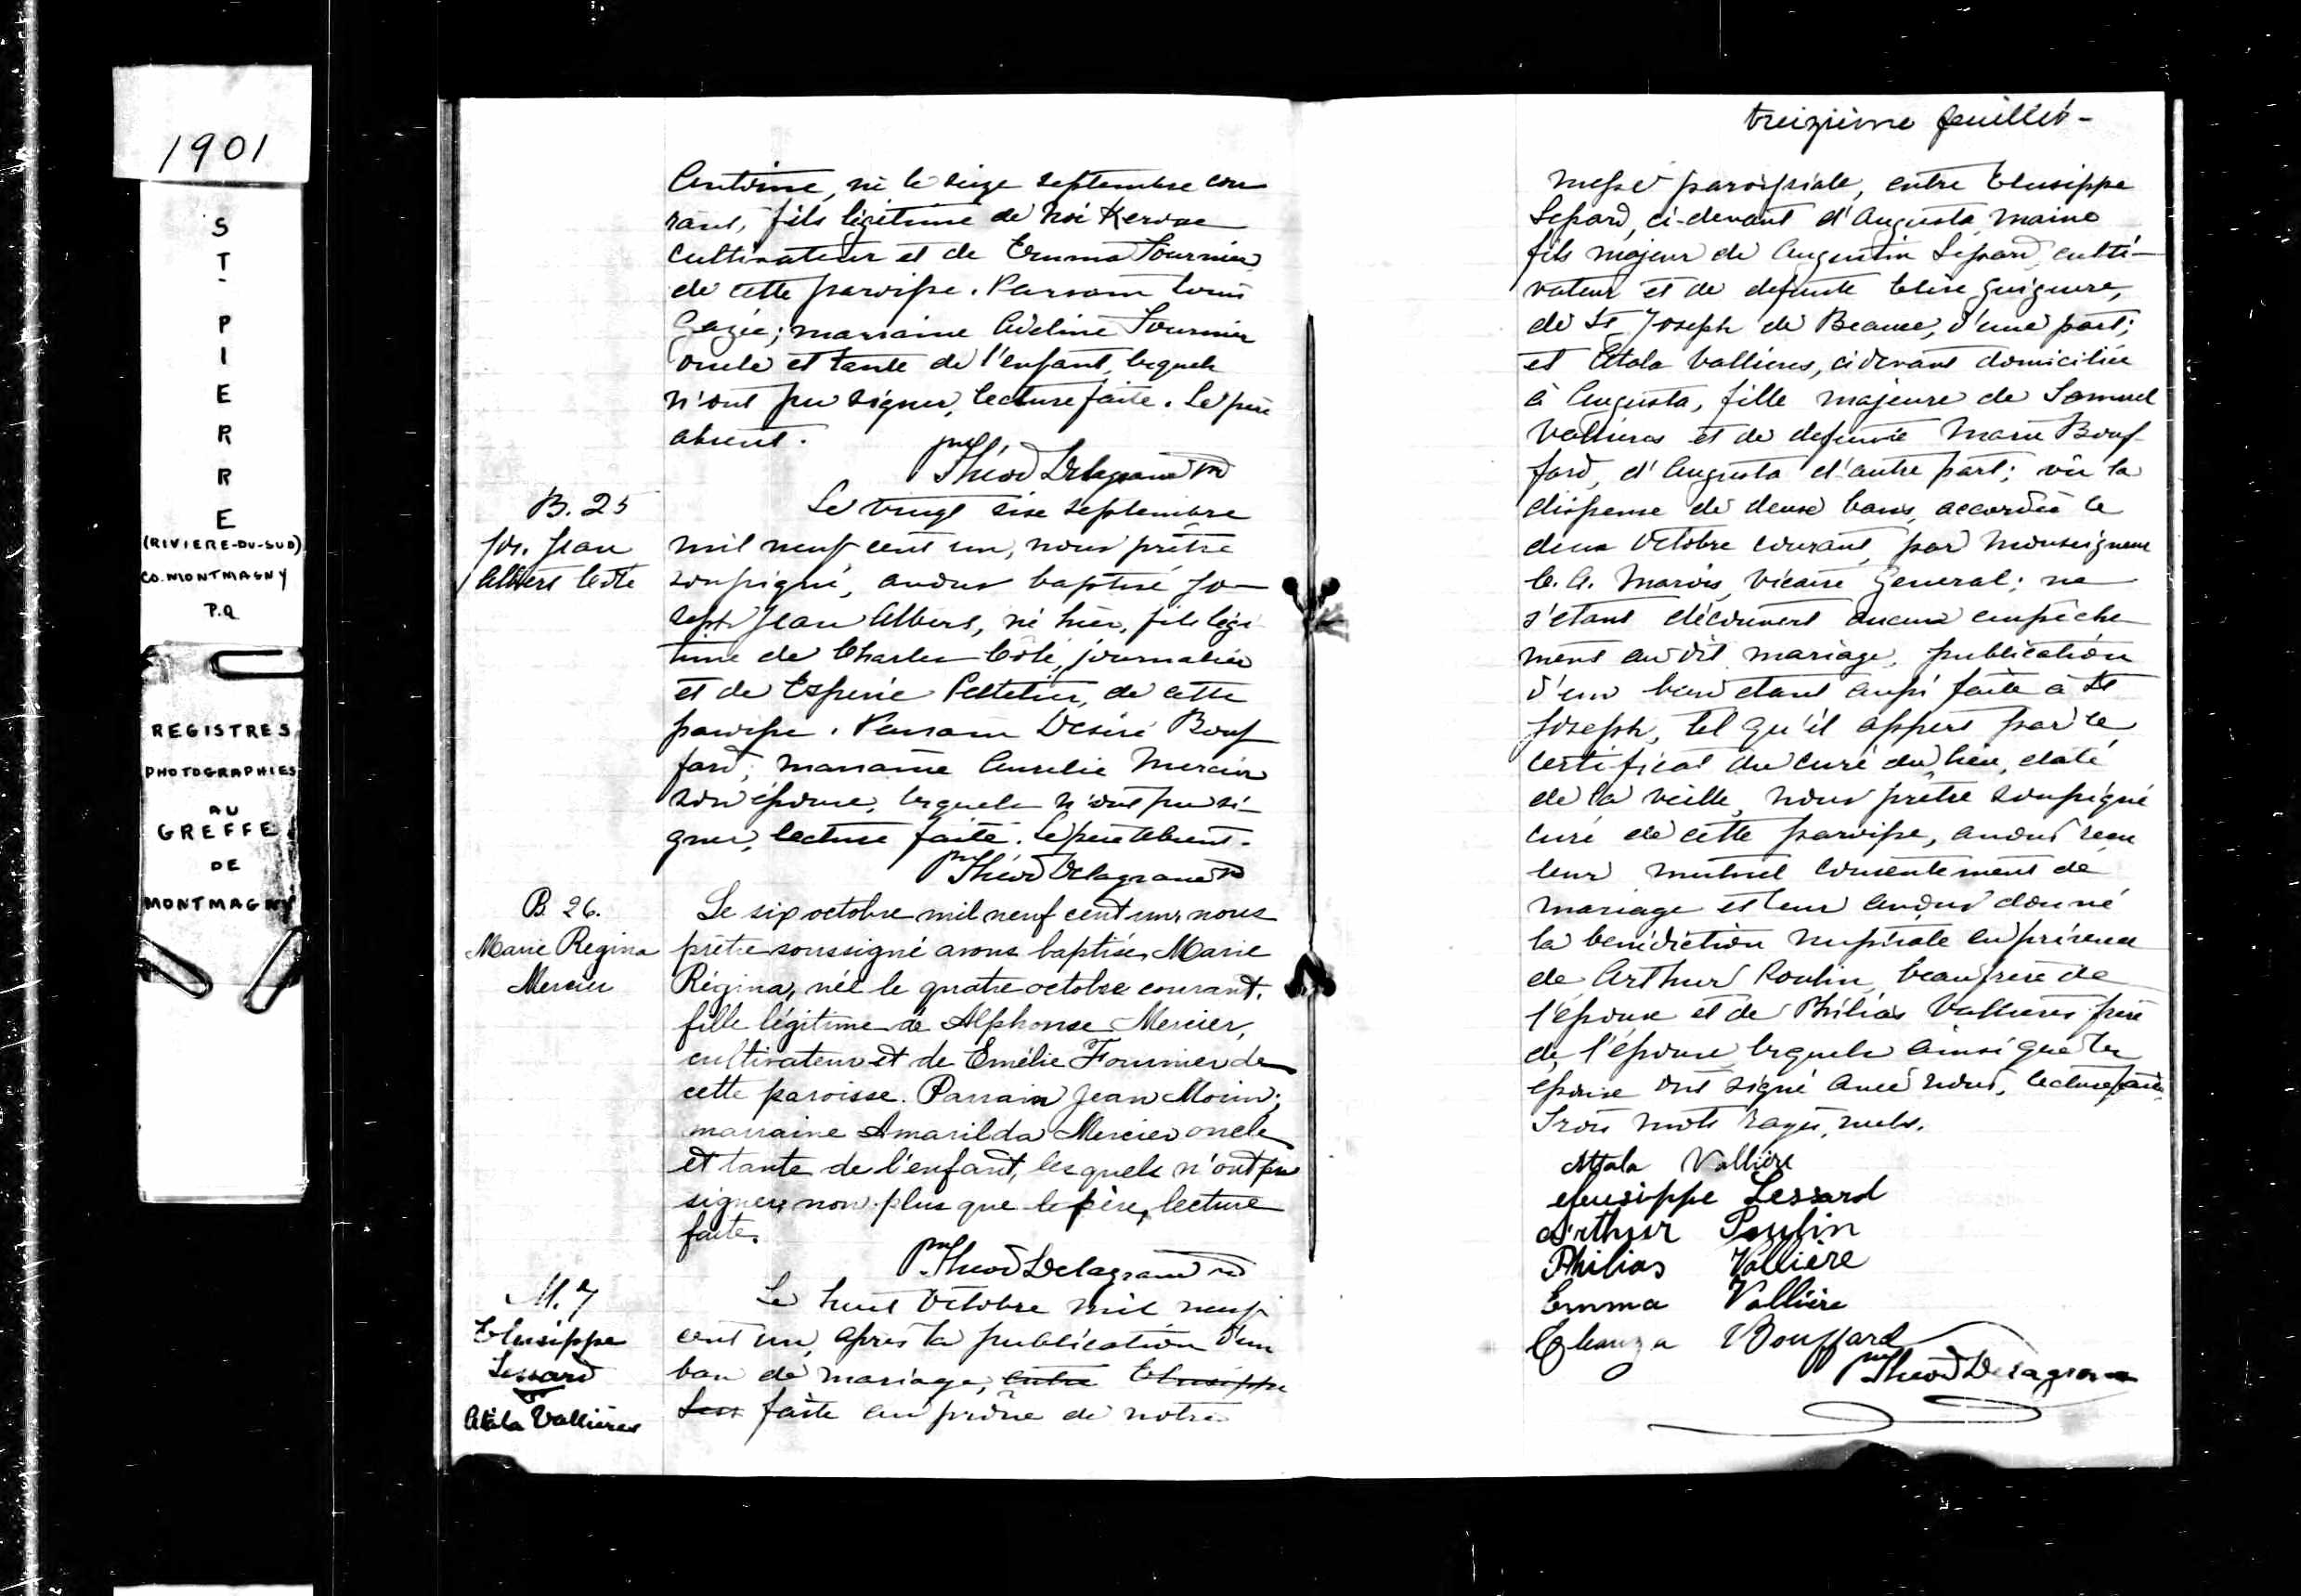 1901
ST PIERRE
(RIVIERE-DU-SUD)
CO. MONTMAGNY
P.Q
REGISTRES
PHOTOGRAPHIES
AU
GREFFE
DE
MONTMAGNY
Antoine, né le seize septembre cou
rant, fils légitime de Noé Kéroac
cultivateur et de Emma Fournier
de cette paroisse. Parrain Louis
marraine Adeline Fournier
oncle et tante de l'enfant, lesquels
n'ont pu signer, lecture faite. Le père
absent.
Théod Delagrave ptre
B. 25
Jos. Jean
Albert Coté
Le vingt six septembre
mil neuf cent un, nous prêtre
soussigné, avons baptisé Jo-
seph Jean Albert, né hier, fils légi
time de Charles Côté, journalier
et de Experie Pelletier, de cette
paroisse. Parrain Désiré Bouf
fard; marraine Aurelie Mercier
son épouse, lesquels n'ont pu si-
gner, lecture faite. Le père absent.
Théod Delagrave ptre
B. 26.
Marie Regina
Mercier
Le six octobre mil neuf cent un, nous
prêtre soussigné avons baptisé, Marie
Régina, née le quatre octobre courant,
fille légitime de Alphonse Mercier,
cultivateur et de Emélie Fournier de
cette paroisse. Parrain Jean Morin;
marraine Amarilda Mercier oncle
et tante de l'enfant, lesquels n'ont pu
signer, non plus que le père, lecture
faite.
Théod Delagrave ptre
M. 7
Elusippe
Lessard
&
Atala Vallières
Le huit Octobre mil neuf
cent un, après la publication d'un
ban de mariage, entre Elusippe
Less faite au prône de notre
treizième feuillet -
messe paroissiale, entre Elusippe
Lessard, ci-devant d'Augusta, Maine
fils majeur de Augustin Lessard, culti-
vateur et de defunte Elise Giguere,
de St Joseph de Beauce, d'une part;
et Atala Vallieres, ci devant domiciliée
à Augusta, fille majeure de Samuel
Vallieres et de defunte Marie Bouf-
fard, d'Augusta d'autre part; vu la
dispense de deux bans, accordée le
deux Octobre courant, par Monseigneur
C. A. Marois, Vicaire General; ne
s'étant découvert aucun empêche
ment au dit mariage, publication
d'un ban étant aussi faite à St
Joseph, tel qu'il appert par le
certificat du curé du lieu, daté
de la veille, nous prêtre soussigné
curé de cette paroisse, avons reçu
leur mutuel consentement de
mariage et leur avons donné
la bénédiction nuptiale en présence
de Arthur Poulin, beau frère de
l'épouse et de Philias Vallieres frère
de l'épouse lesquels ainsi que les
epoux ont signé avec nous, lecture faite.
Trois mots rayés nuls.
Attala Vallière
elusippe Lessard
Arthur Poulin
Philias Vallière
Emma Vallière
Bouffard
Théod Delagrave ptre